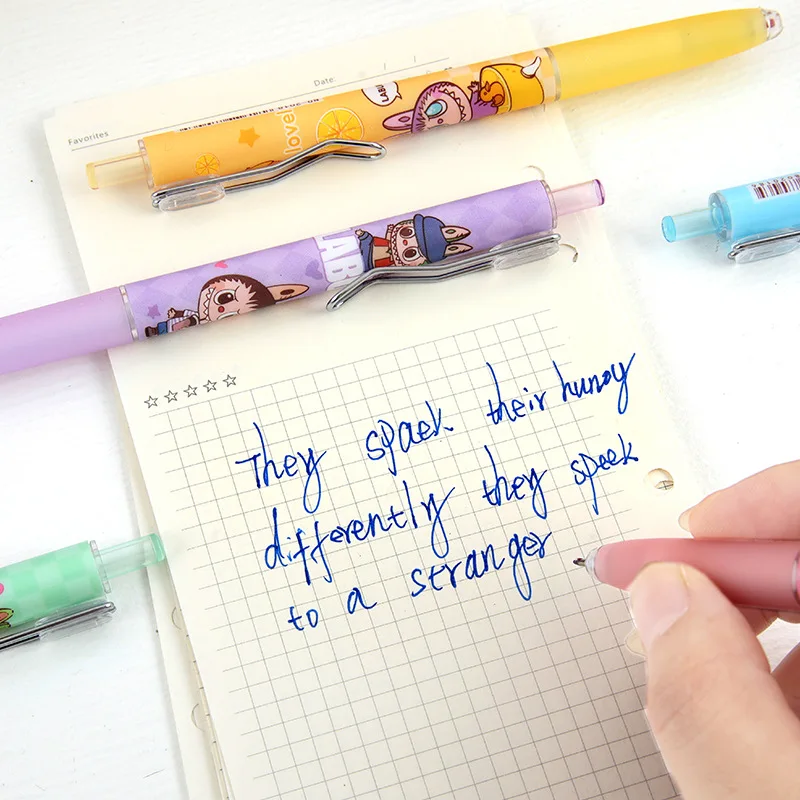 Date:
Favorites
LAB
love
LAB
They spaek their hunoy
differently they speek
to a stranger